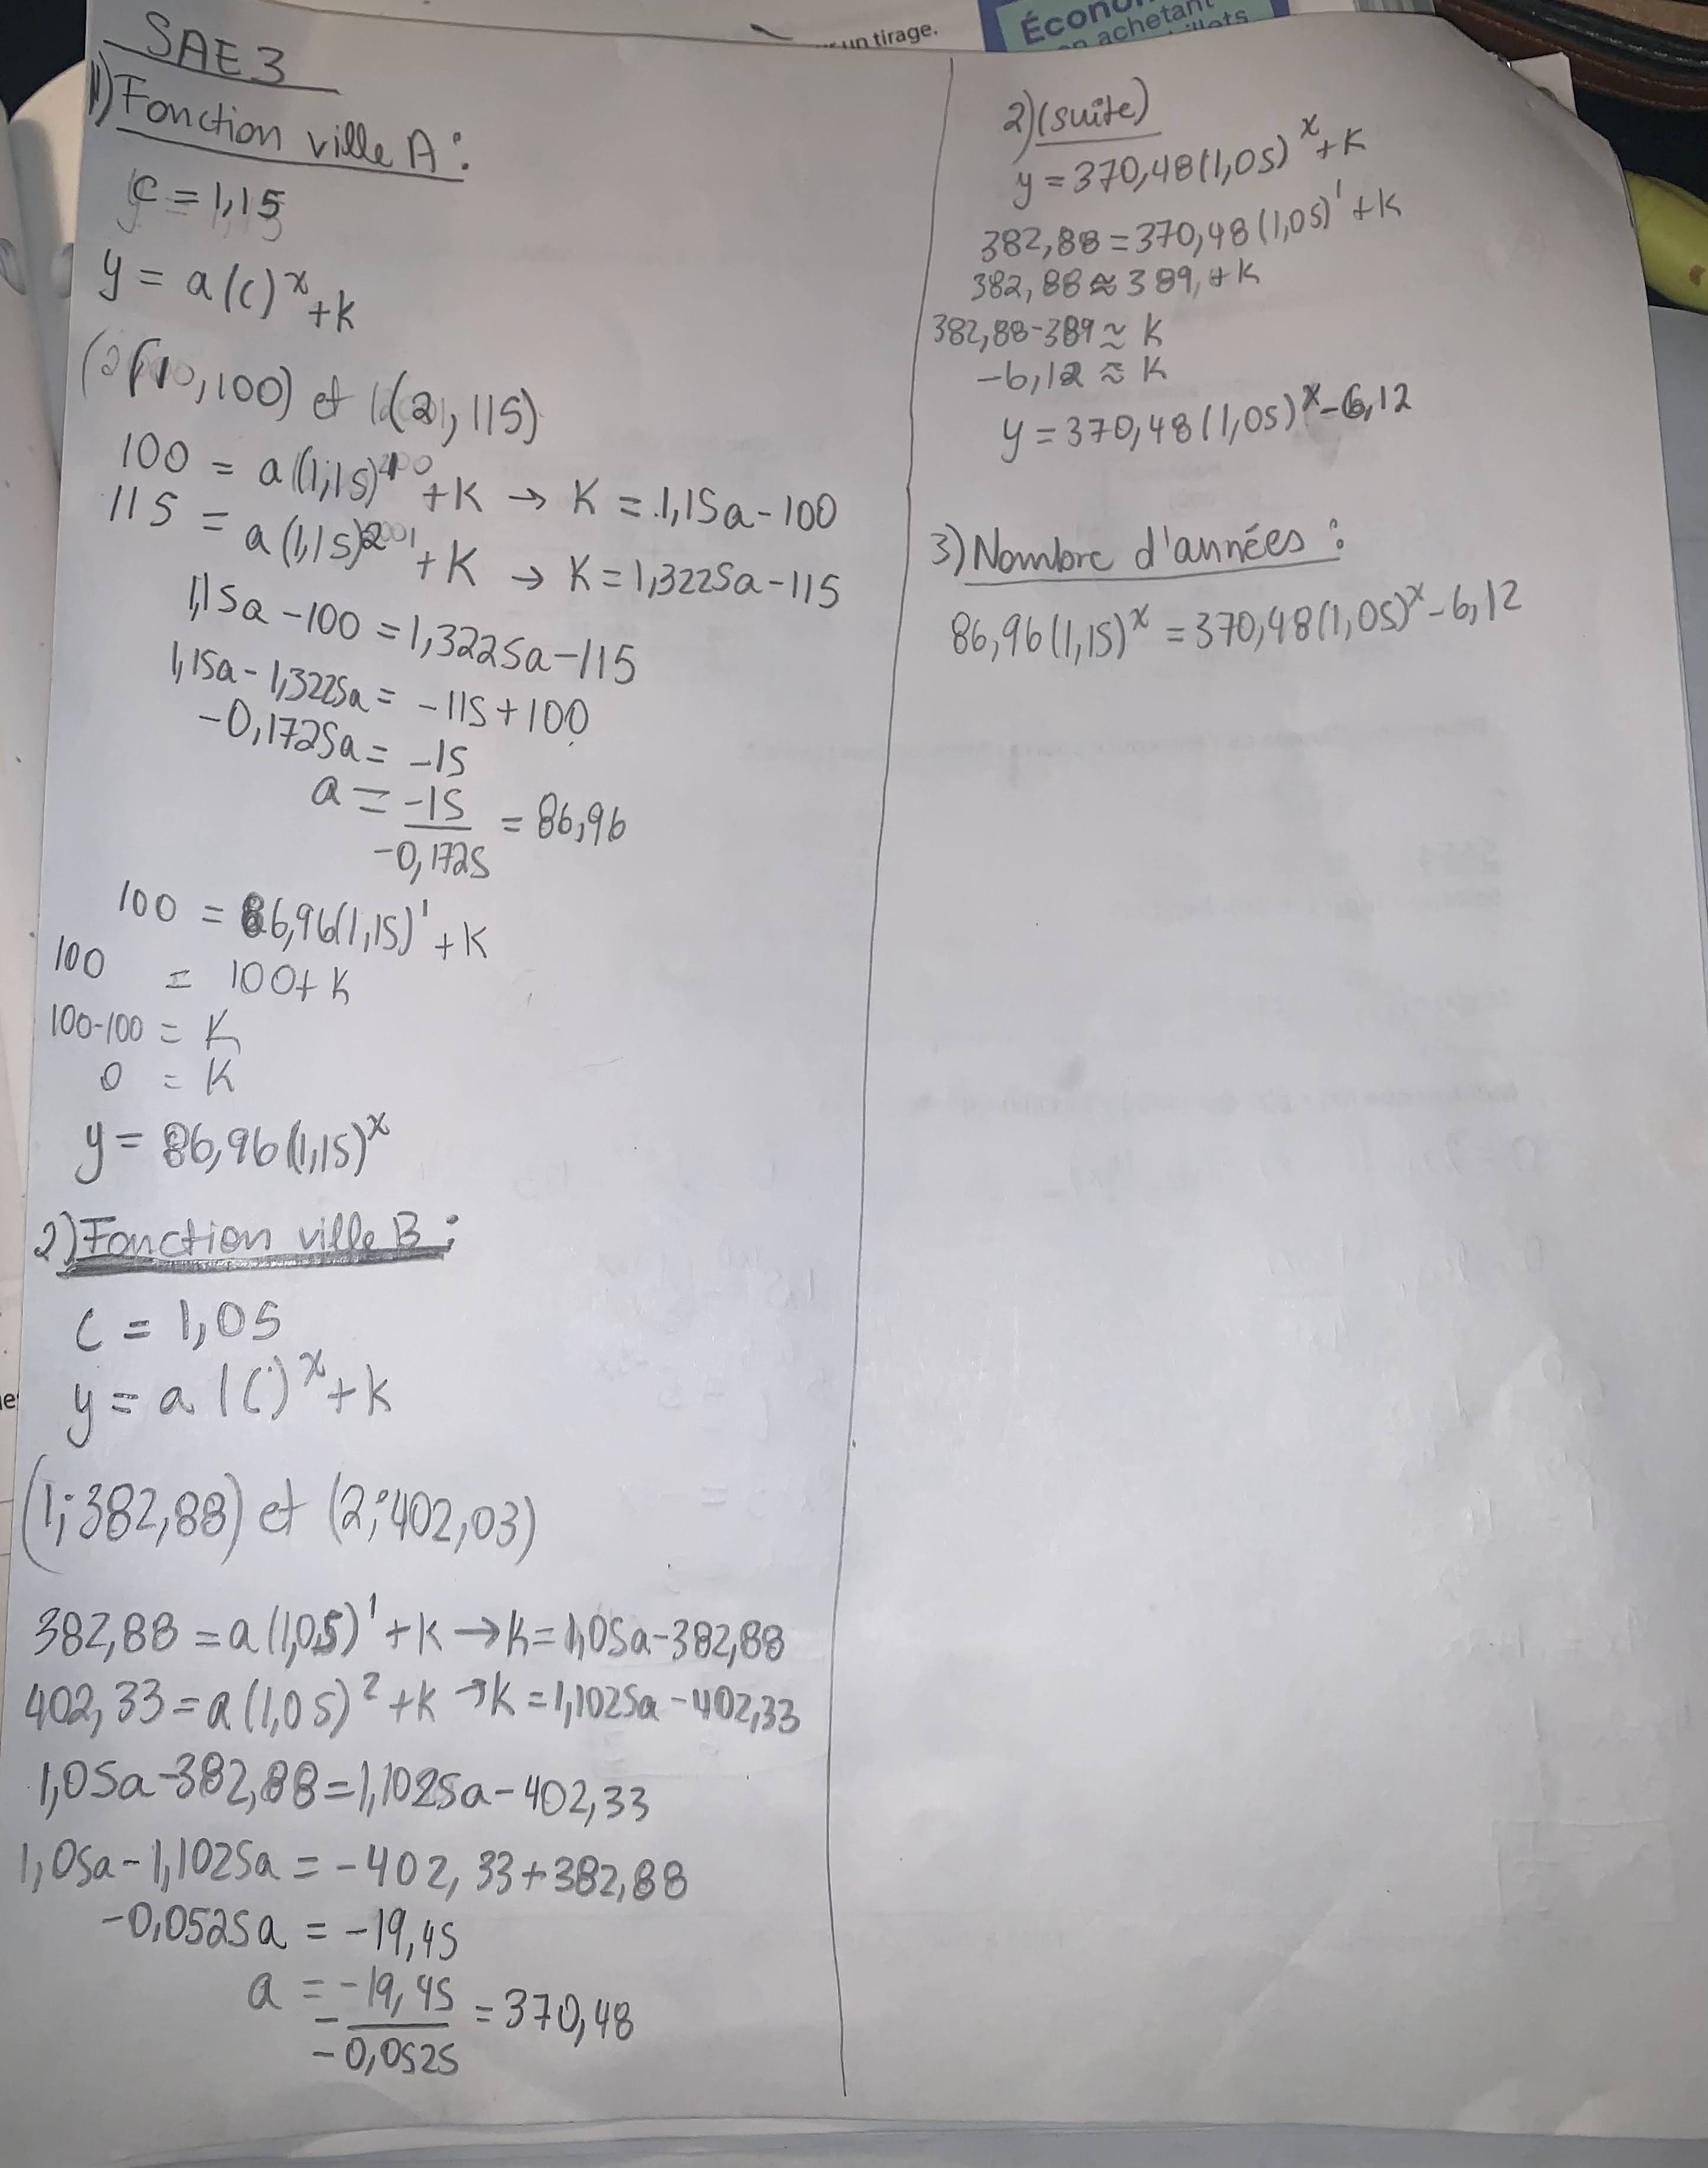 un tirage.
achetant
SAE3
1) Fonction ville A :
c = 1,15
y = a(c)^x + k
(1,100) et (2,115)
100 = a(1,15)^1 + K → K = 1,15a - 100
115 = a(1,15)^2 + K → K = 1,3225a - 115
1,15a - 100 = 1,3225a - 115
1,15a - 1,3225a = -115 + 100
-0,1725a = -15
a = -15/-0,1725 = 86,96
100 = 86,96(1,15)^1 + K
100 = 100 + K
100-100 = K
0 = K
y = 86,96(1,15)^x
2) Fonction ville B :
c = 1,05
y = a(c)^x + k
(1;382,88) et (2;402,03)
382,88 = a(1,05)^1 + k → k = 1,05a - 382,88
402,33 = a(1,05)^2 + k → k = 1,1025a - 402,33
1,05a - 382,88 = 1,1025a - 402,33
1,05a - 1,1025a = -402,33 + 382,88
-0,0525a = -19,45
a = -19,45/-0,0525 = 370,48
2)(suite)
y = 370,48(1,05)^x + K
382,88 = 370,48(1,05)^1 + K
382,88 ≈ 389, + K
382,88-389 ≈ K
-6,12 ≈ K
y = 370,48(1,05)^x - 6,12
3) Nombre d'années :
86,96(1,15)^x = 370,48(1,05)^x - 6,12